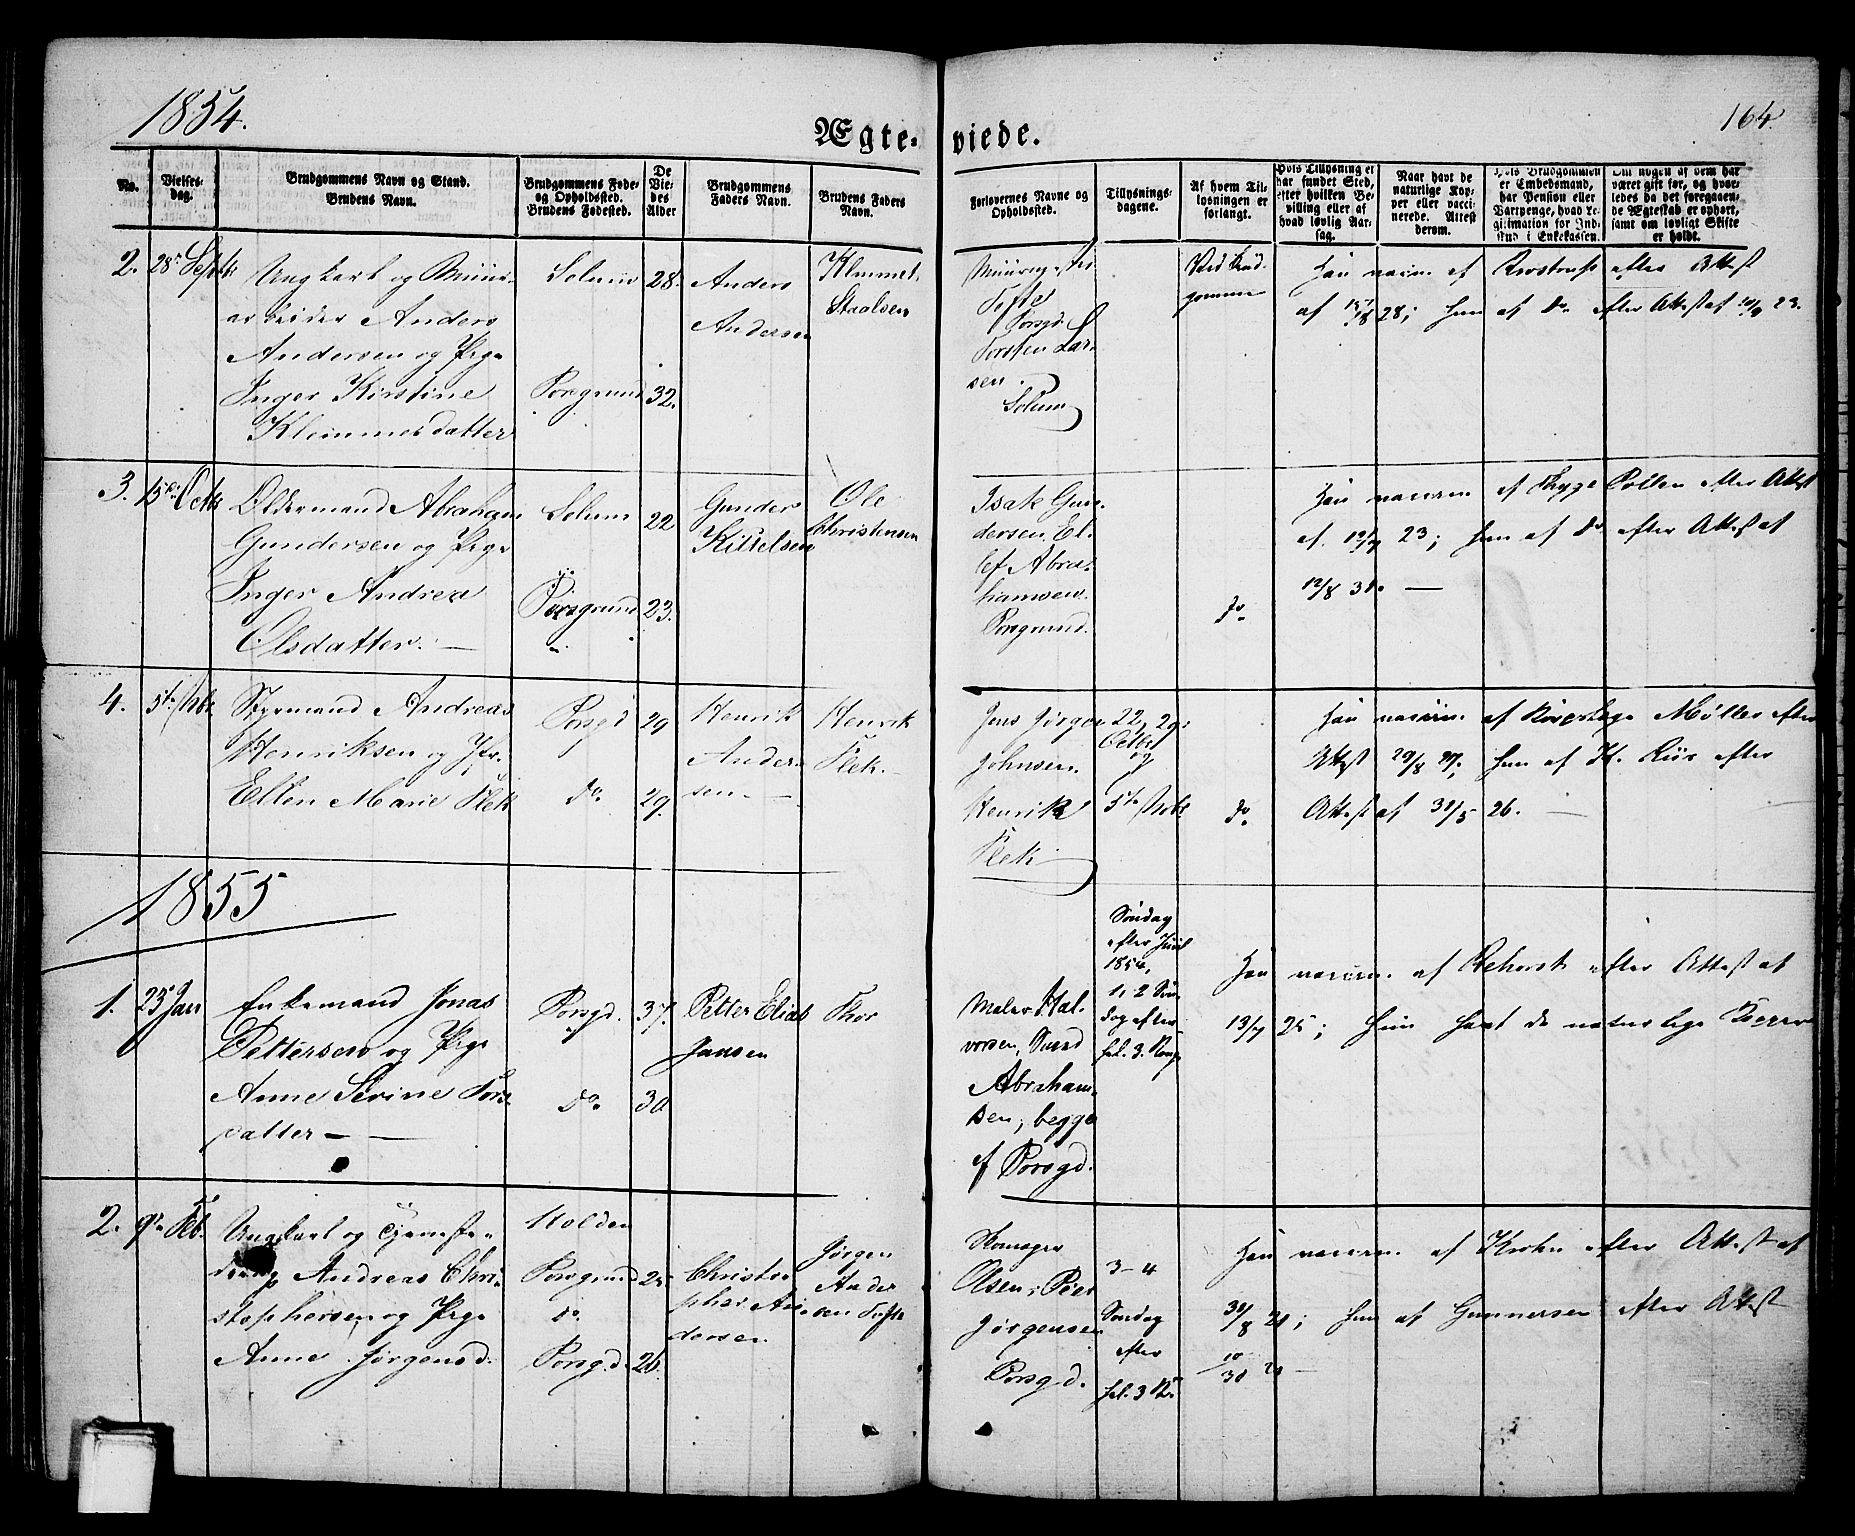 1854.
164.
Ægte-viede.
No.
Vielses-
dag.
Brudgommens Navn og Stand.
Brudens Navn.
Brudgommens Føde-
og Opholdssted.
Brudens Fødested.
De
Vie-
des
Alder
Brudgommens
Faders Navn.
Brudens Faders
Navn.
Forlovernes Navne og
Opholdssted.
Tillysnings-
dagene.
Af hvem Til-
lysningen er
forlangt.
Hvis Tillysning ei
har fundet Sted,
efter hvilken Be-
villing eller af
hvad lovlig Aar-
sag.
Naar havt de
naturlige Kop-
per eller vacci-
nerede. Attest
derom.
Hvis Brudgommen
er Embedsmand,
har Pension eller
Vartpenge, hvad Le-
gitimation for Ind-
skud i Enkekassen.
Om nogen af dem har
været gift før, og hvor-
ledes da det foregaaen-
de Ægteskab er ophørt,
samt om lovligt Skifte
er holdt.
2. 28 Septbr
Ungkarl og Muur-
arbeider Anders
Andersen og Pige
Inger Kirstine
Klemmesdatter
Solum 28.
Porsgrund 32.
Anders
Andersen
Klemmet
Staalsen
Torsten Lar-
sen.
Solum
Ved Brud-
gommen
Han vaccin. af efter Attest
28; hun af do efter Attest af 23.
3. 15de Octbr
Oldermand Abraham
Gundersen og Pige
Inger Andrea
Olsdatter.
Solum 22
Porsgrund 23.
Gunder
Kittelsen
Ole
Christensen
Isak Gun-
dersen, El-
lef Abra-
hamsen.
Porsgrund.
do
Han vaccin. af efter Attest
af 23; hun af do efter Attest af
12/8 30.
4. 5te Nbr
Styrmand Andreas
Henriksen og Jfr.
Ellen Marie Flek
Porsgd 29
do 29.
Henrik
Ander-
sen
Henrik
Flek.
Jens Jørgen
Johnsen.
Henrik
Flek
22, 29.
Octbr
og
5te Nvbr
do
Han vaccin. af Møller efter
Attest 29/8 ; hun af H. Riis efter
Attest af 31/5 26.
1855
1. 23 Jan
Enkemand Jonas
Pettersen og Pige
Anne Serine Tors-
datter
Porsgd. 37.
do 30
Petter Elias
Jansen
Thor
Maler Hal-
vorsen,
Abraham-
sen, begge
af Porsgd.
Søndag
efter Juul
1854,
1, 2 Søn-
dag efter
hel. 3. Kong.
Han vaccin. af Rehorst efter Attest af
13/7 25; Hun havt de naturlige Kopper
2. 9de Feb.
Ungkarl og Tjeneste-
dreng Andreas Chri-
stophersen og Pige
Anne Jørgensd.
Holden
Porsgrund 25
do
Porsgd. 26
Christo-
pher An-
dersen
Jørgen
Ander
sen Tofte
Olsen, Peer
Jørgensen
Porsgd.
3-4
Søndag
efter
hel. 3 K.
Han vaccin. af Krohn efter Attest af
; hun af Gunnersen efter Attest